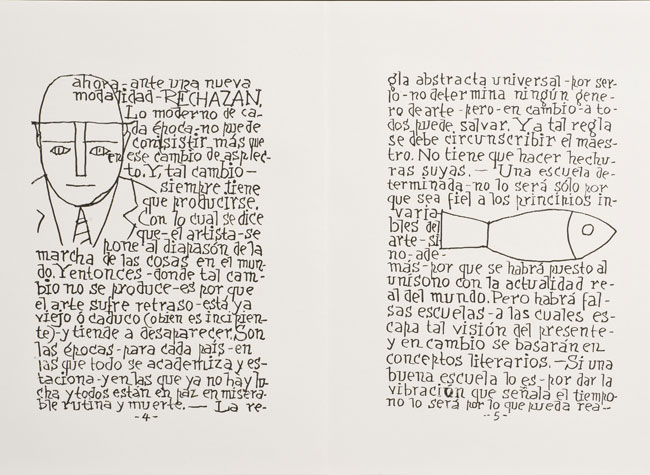 ahora-ante una nueva
modalidad-RECHAZAN.
Lo moderno de ca-
da época-no puede
consistir más que
en ese cambio de aspec-
to. Y, tal cambio-
siempre tiene
que producirse.
Con lo cual se dice
que-el artista-se
pone al diapasón de la
marcha de las cosas en el mun-
do. Y entonces-donde tal cam-
bio no se produce-es por que
el arte sufre retraso-está ya
viejo ó caduco (o bien es incipien-
te)-y tiende a desaparecer. Son
las épocas-para cada país-en
las que todo se academiza y es-
taciona-y en las que ya no hay lu-
cha y todos están en paz en misera-
ble rutina y muerte.— La re-
-4-
gla abstracta universal-por ser-
lo-no determina ningún gene-
ro de arte-pero-en cambio-a to-
dos puede salvar. Y a tal regla
se debe circunscribir el maes-
tro. No tiene que hacer hechu-
ras suyas.— Una escuela de-
terminada-no lo será sólo por
que sea fiel a los principios in-
varia-
bles del
arte-si
no-ade-
más-por que se habrá puesto al
unísono con la actualidad re-
al del mundo. Pero habrá fal-
sas escuelas-a las cuales es-
capa tal visión del presente-
y en cambio se basarán en
conceptos literarios.—Si una
buena escuela lo es-por dar la
vibración que señala el tiempo-
no lo será por lo que pueda rea-
-5-